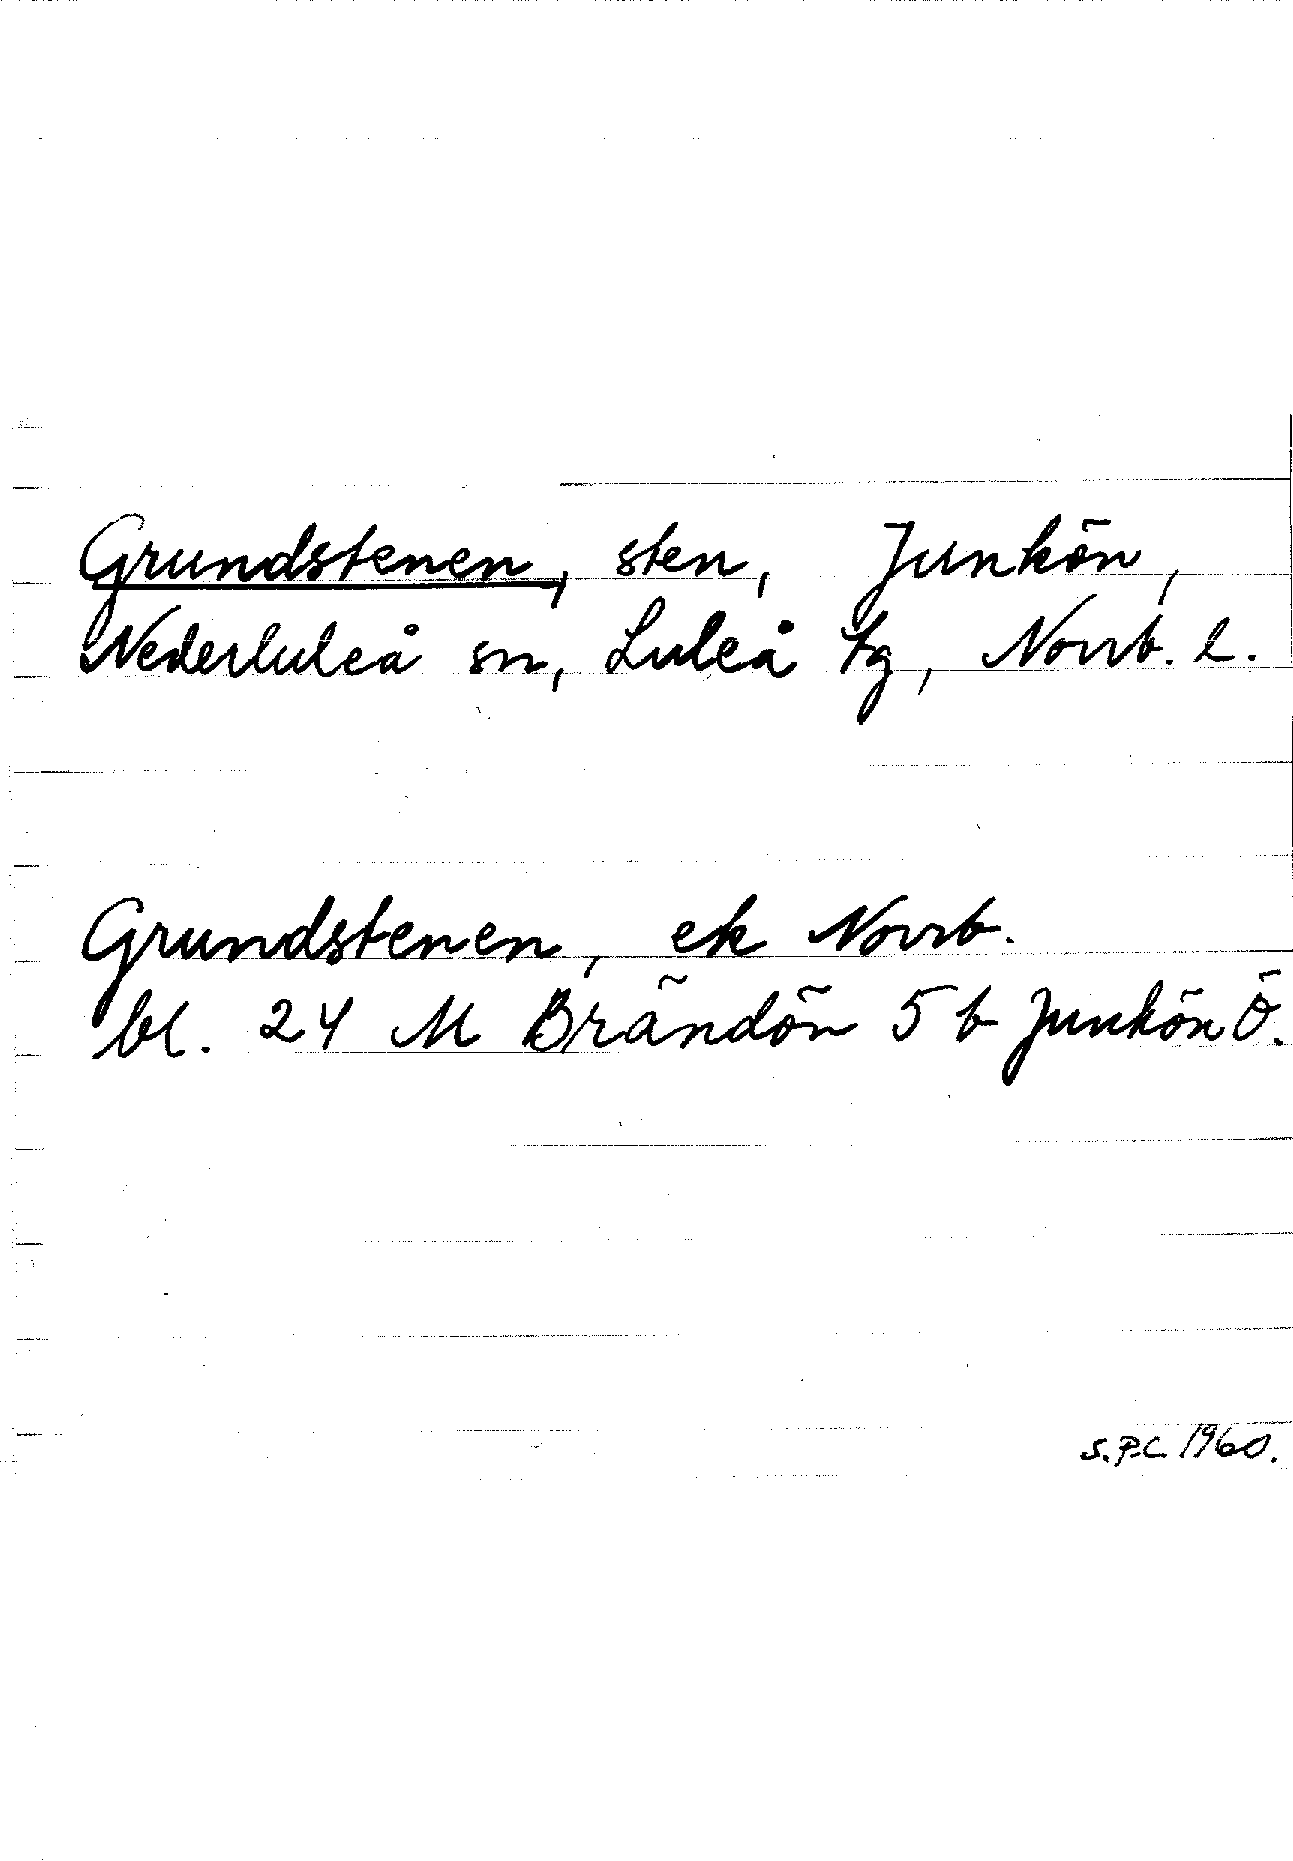 Grundstenen, sten, Junkön,
Nederluleå sn, Luleå tg, Norrb. l.
Grundstenen, ek Norrb.
bl. 24 M Brändön 5 b Junkön Ö.
S.P.C. 1960.